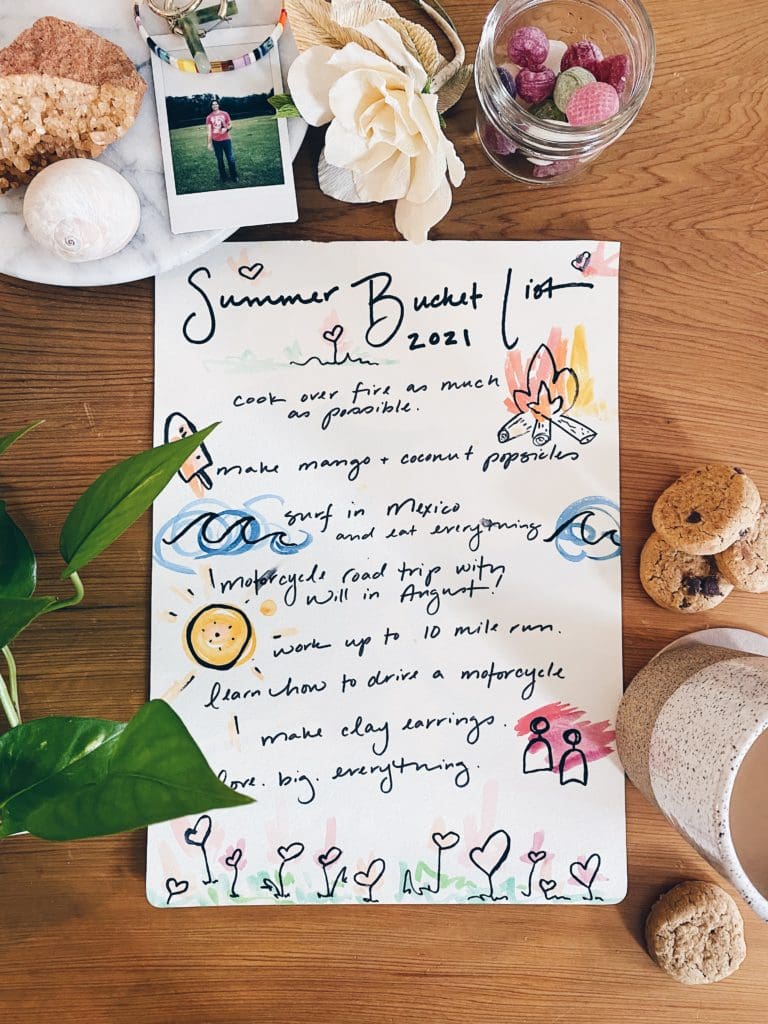 Summer Bucket List
2021
cook over fire as much
as possible.
make mango + coconut popsicles
surf in Mexico
and eat everything
motorcycle road trip with
Will in August!
work up to 10 mile run.
learn how to drive a motorcycle
make clay earrings.
love. big. everything.